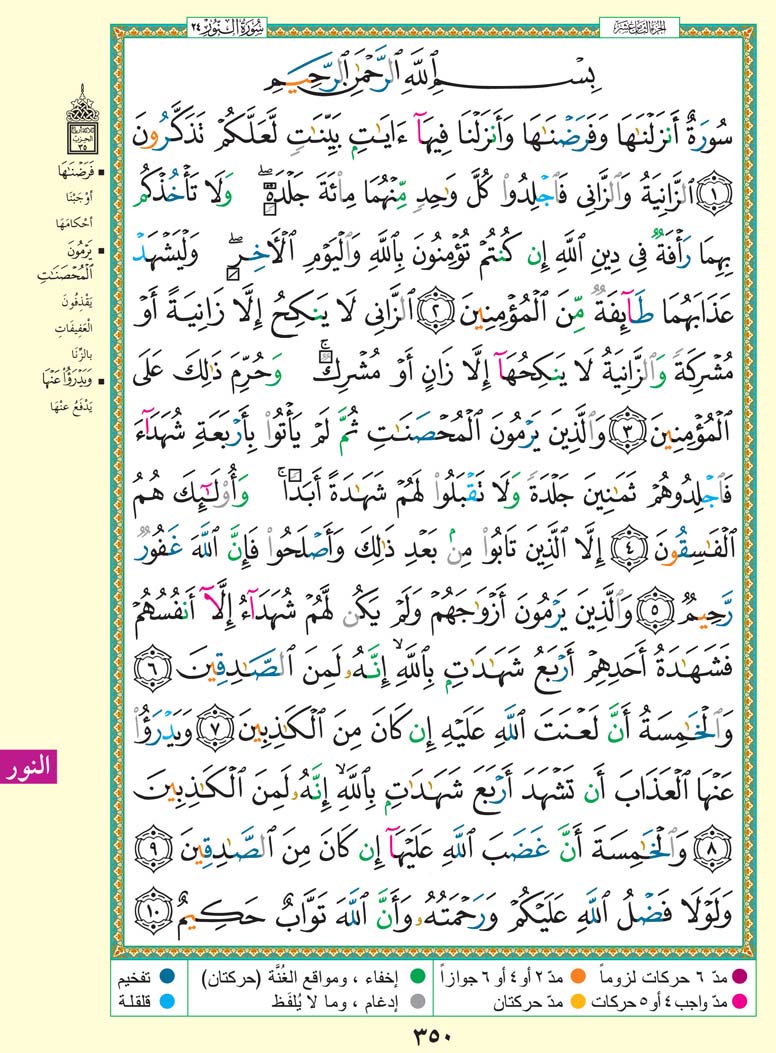 الجزء الثامن عشر
سُورَةُ النُّورِ ٢٤
بِسْمِ ٱللَّهِ ٱلرَّحْمَٰنِ ٱلرَّحِيمِ
سُورَةٌ أَنزَلْنَٰهَا وَفَرَضْنَٰهَا وَأَنزَلْنَا فِيهَآ ءَايَٰتٍۭ بَيِّنَٰتٍ لَّعَلَّكُمْ تَذَكَّرُونَ
١ ٱلزَّانِيَةُ وَٱلزَّانِى فَٱجْلِدُوا۟ كُلَّ وَٰحِدٍ مِّنْهُمَا مِا۟ئَةَ جَلْدَةٍۖ وَلَا تَأْخُذْكُم
بِهِمَا رَأْفَةٌ فِى دِينِ ٱللَّهِ إِن كُنتُمْ تُؤْمِنُونَ بِٱللَّهِ وَٱلْيَوْمِ ٱلْءَاخِرِۖ وَلْيَشْهَدْ
عَذَابَهُمَا طَآئِفَةٌ مِّنَ ٱلْمُؤْمِنِينَ ٢ ٱلزَّانِى لَا يَنكِحُ إِلَّا زَانِيَةً أَوْ
مُشْرِكَةً وَٱلزَّانِيَةُ لَا يَنكِحُهَآ إِلَّا زَانٍ أَوْ مُشْرِكٌۚ وَحُرِّمَ ذَٰلِكَ عَلَى
ٱلْمُؤْمِنِينَ ٣ وَٱلَّذِينَ يَرْمُونَ ٱلْمُحْصَنَٰتِ ثُمَّ لَمْ يَأْتُوا۟ بِأَرْبَعَةِ شُهَدَآءَ
فَٱجْلِدُوهُمْ ثَمَٰنِينَ جَلْدَةً وَلَا تَقْبَلُوا۟ لَهُمْ شَهَٰدَةً أَبَدًاۚ وَأُو۟لَٰٓئِكَ هُمُ
ٱلْفَٰسِقُونَ ٤ إِلَّا ٱلَّذِينَ تَابُوا۟ مِنۢ بَعْدِ ذَٰلِكَ وَأَصْلَحُوا۟ فَإِنَّ ٱللَّهَ غَفُورٌ
رَّحِيمٌ ٥ وَٱلَّذِينَ يَرْمُونَ أَزْوَٰجَهُمْ وَلَمْ يَكُن لَّهُمْ شُهَدَآءُ إِلَّآ أَنفُسُهُمْ
فَشَهَٰدَةُ أَحَدِهِمْ أَرْبَعُ شَهَٰدَٰتٍۭ بِٱللَّهِۙ إِنَّهُۥ لَمِنَ ٱلصَّٰدِقِينَ ٦
وَٱلْخَٰمِسَةُ أَنَّ لَعْنَتَ ٱللَّهِ عَلَيْهِ إِن كَانَ مِنَ ٱلْكَٰذِبِينَ ٧ وَيَدْرَؤُا۟
عَنْهَا ٱلْعَذَابَ أَن تَشْهَدَ أَرْبَعَ شَهَٰدَٰتٍۭ بِٱللَّهِۙ إِنَّهُۥ لَمِنَ ٱلْكَٰذِبِينَ
٨ وَٱلْخَٰمِسَةَ أَنَّ غَضَبَ ٱللَّهِ عَلَيْهَآ إِن كَانَ مِنَ ٱلصَّٰدِقِينَ ٩
وَلَوْلَا فَضْلُ ٱللَّهِ عَلَيْكُمْ وَرَحْمَتُهُۥ وَأَنَّ ٱللَّهَ تَوَّابٌ حَكِيمٌ ١٠
الحزب
٣٥
فَرَضْنَٰهَا
أَوْجَبْنَا
أَحْكَامَهَا
يَرْمُونَ
ٱلْمُحْصَنَٰتِ
يَقْذِفُونَ
العَفِيفَاتِ
بالزِّنَا
وَيَدْرَؤُا۟ عَنْهَا
يَدْفَعُ عَنْهَا
النور
مدّ ٦ حركات لزوماً
مدّ ٢ أو ٤ أو ٦ جوازاً
إخفاء ، ومواقع الغُنَّة (حركتان)
تفخيم
مدّ واجب ٤ أو ٥ حركات
مدّ حركتان
إدغام ، وما لا يُلفَظ
قلقلة
٣٥٠